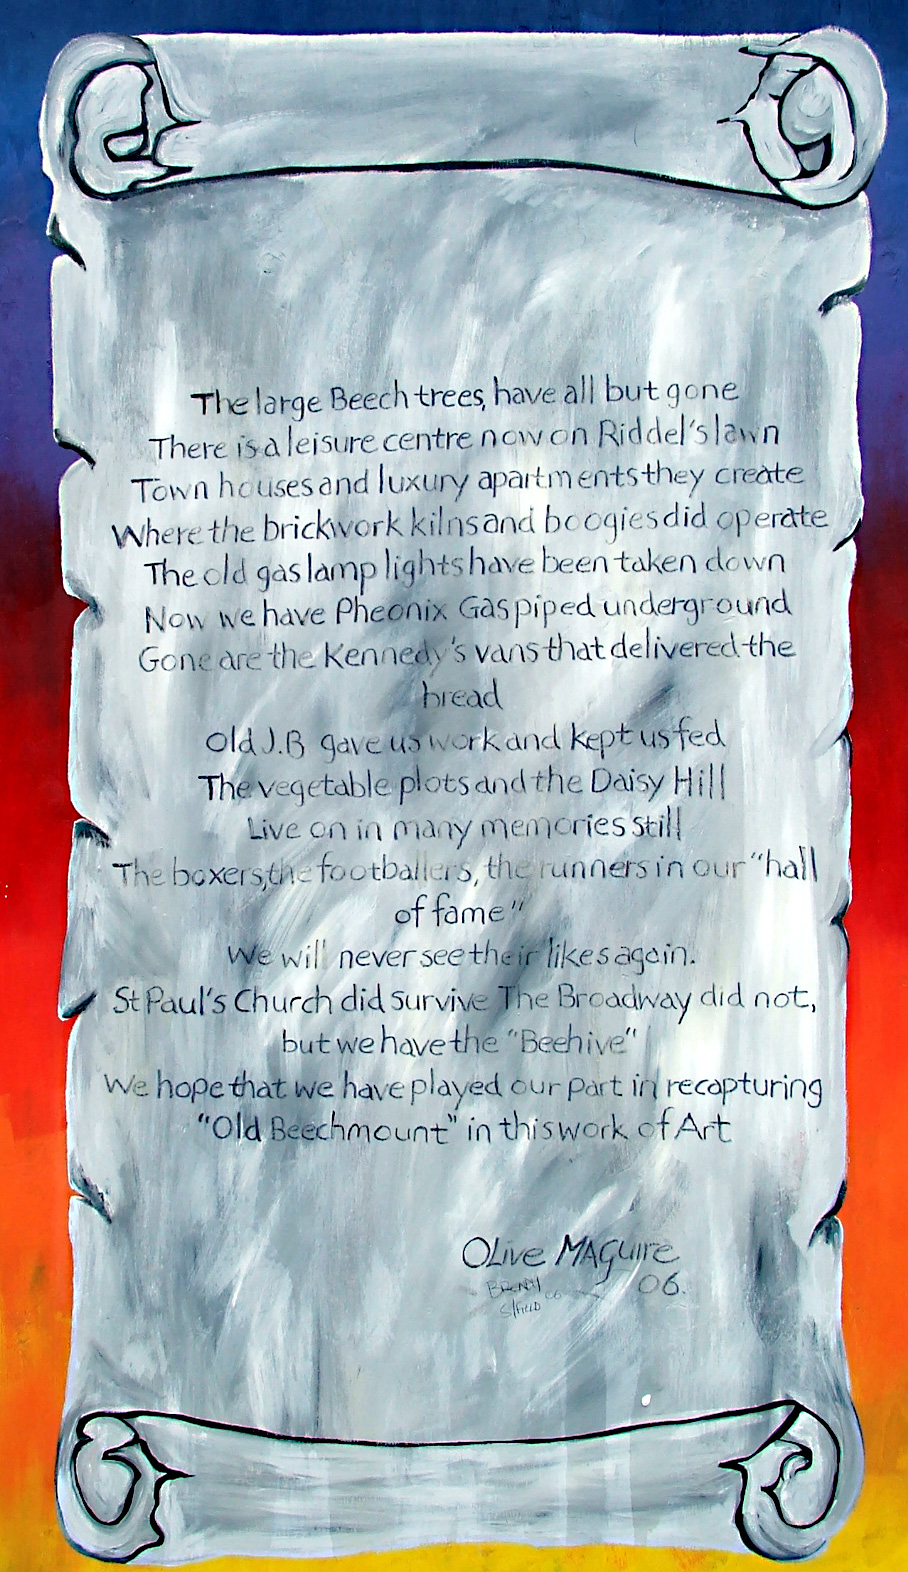 The large Beech trees, have all but gone
There is a leisure centre now on Riddel's lawn
Town houses and luxury apartments they create
Where the brickwork kilns and boogies did operate
The old gas lamp lights have been taken down
Now we have Pheonix Gas piped underground
Gone are the Kennedy's vans that delivered the
bread
Old J.B gave us work and kept us fed
The vegetable plots and the Daisy Hill
Live on in many memories still
The boxers, the footballers, the runners in our "hall
of fame"
We will never see their likes again.
St Paul's Church did survive The Broadway did not,
but we have the "Beehive"
We hope that we have played our part in recapturing
"Old Beechmount" in this work of Art
Olive Maguire
06.